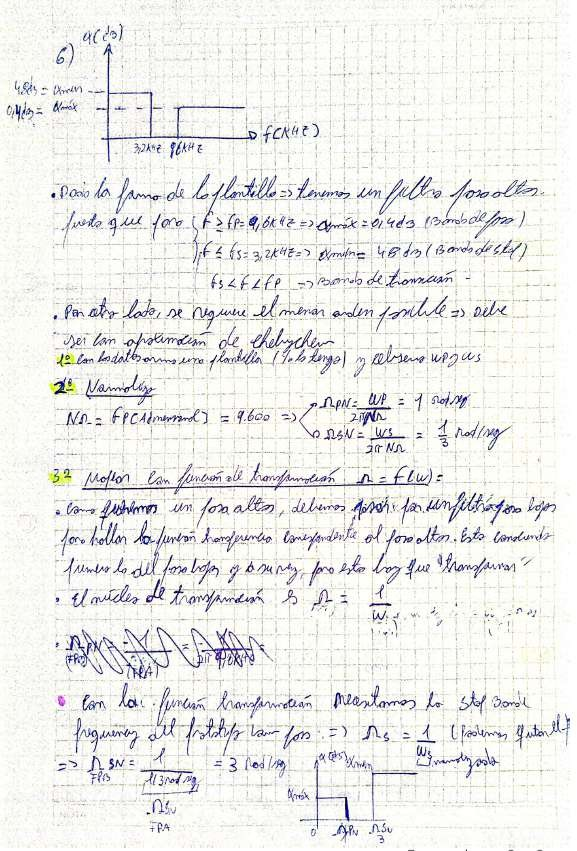 6)
α(dB)
48dB = αmin
0,4dB = αmáx
f(KHz)
3,2KHz 9,6KHz
• Dada la forma de la plantilla => tenemos un filtro pasa altos.
puesto que para f ≥ fp = 9,6KHz => αmáx = 0,4dB (Banda de paso)
f ≤ fs = 3,2KHz => αmín = 48dB (Banda de Stop)
fs < f < fp => Banda de transición
• Por otro lado, se requiere el menor orden posible => Debe
ser con aproximación de Chebychev
1º Con los datos armo una plantilla (Ya la tengo) y obtengo wp y ws
2º Normalizo
NΩ = fp (Adimensional) = 9.600 => ΩPN = wp / 2πNΩ = 1 rad/seg
ΩSN = ws / 2πNΩ = 1/3 rad/seg
3º función de transformación Ω = f(w) =
• Como queremos un pasa altos, debemos por un filtro pasa bajos
para hallar la función transferencia correspondiente al pasa altos. Esto
primero la del pasa bajos y a su vez, para esto hay que "transformar"
• El núcleo de transformación es Ω = 1/w
• Con la función transformación necesitamos la Stop Band
frequency del prototipo Low pass. => ΩS = 1/ws
normalizada
=> ΩSN = 1 / 1/3 rad/seg = 3 rad/seg
FPB
ΩSN
FPA
α(dB)
αmin
αmáx
0 ΩPN ΩSN
3